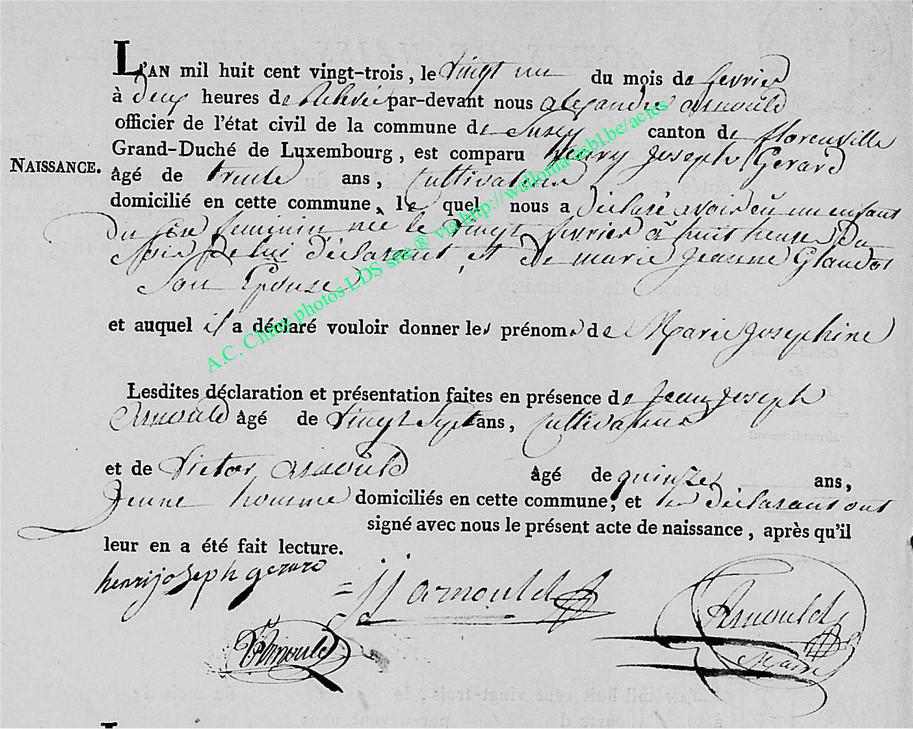 L'AN mil huit cent vingt-trois, le vingt un du mois de fevrier
à deux heures de relevée par-devant nous alexandre arnould
officier de l'état civil de la commune de Suxy canton de florenville
Grand-Duché de Luxembourg, est comparu Henry Joseph Gerard
NAISSANCE.
âgé de trente ans, Cultivateur
domicilié en cette commune, le quel nous a déclaré avoir eu un enfant
du sexe feminin née le vingt fevrier à huit heures du
soir de lui déclarant, et de marie jeanne Glaudot
Son Epouse
et auquel il a déclaré vouloir donner les prénoms de Marie Josephine
Lesdites déclaration et présentation faites en présence de Jean Joseph
Arnould âgé de vingt sept ans, Cultivateur
et de Victor arnould âgé de quinze ans,
Jeune homme domiciliés en cette commune, et les déclarant ont
signé avec nous le présent acte de naissance, après qu'il
leur en a été fait lecture.
henri joseph gerard
jj arnould
Arnould
Maire
V Arnould
A.C. Chiny photos LDS src® via http://wallonia-asbl.be/actes